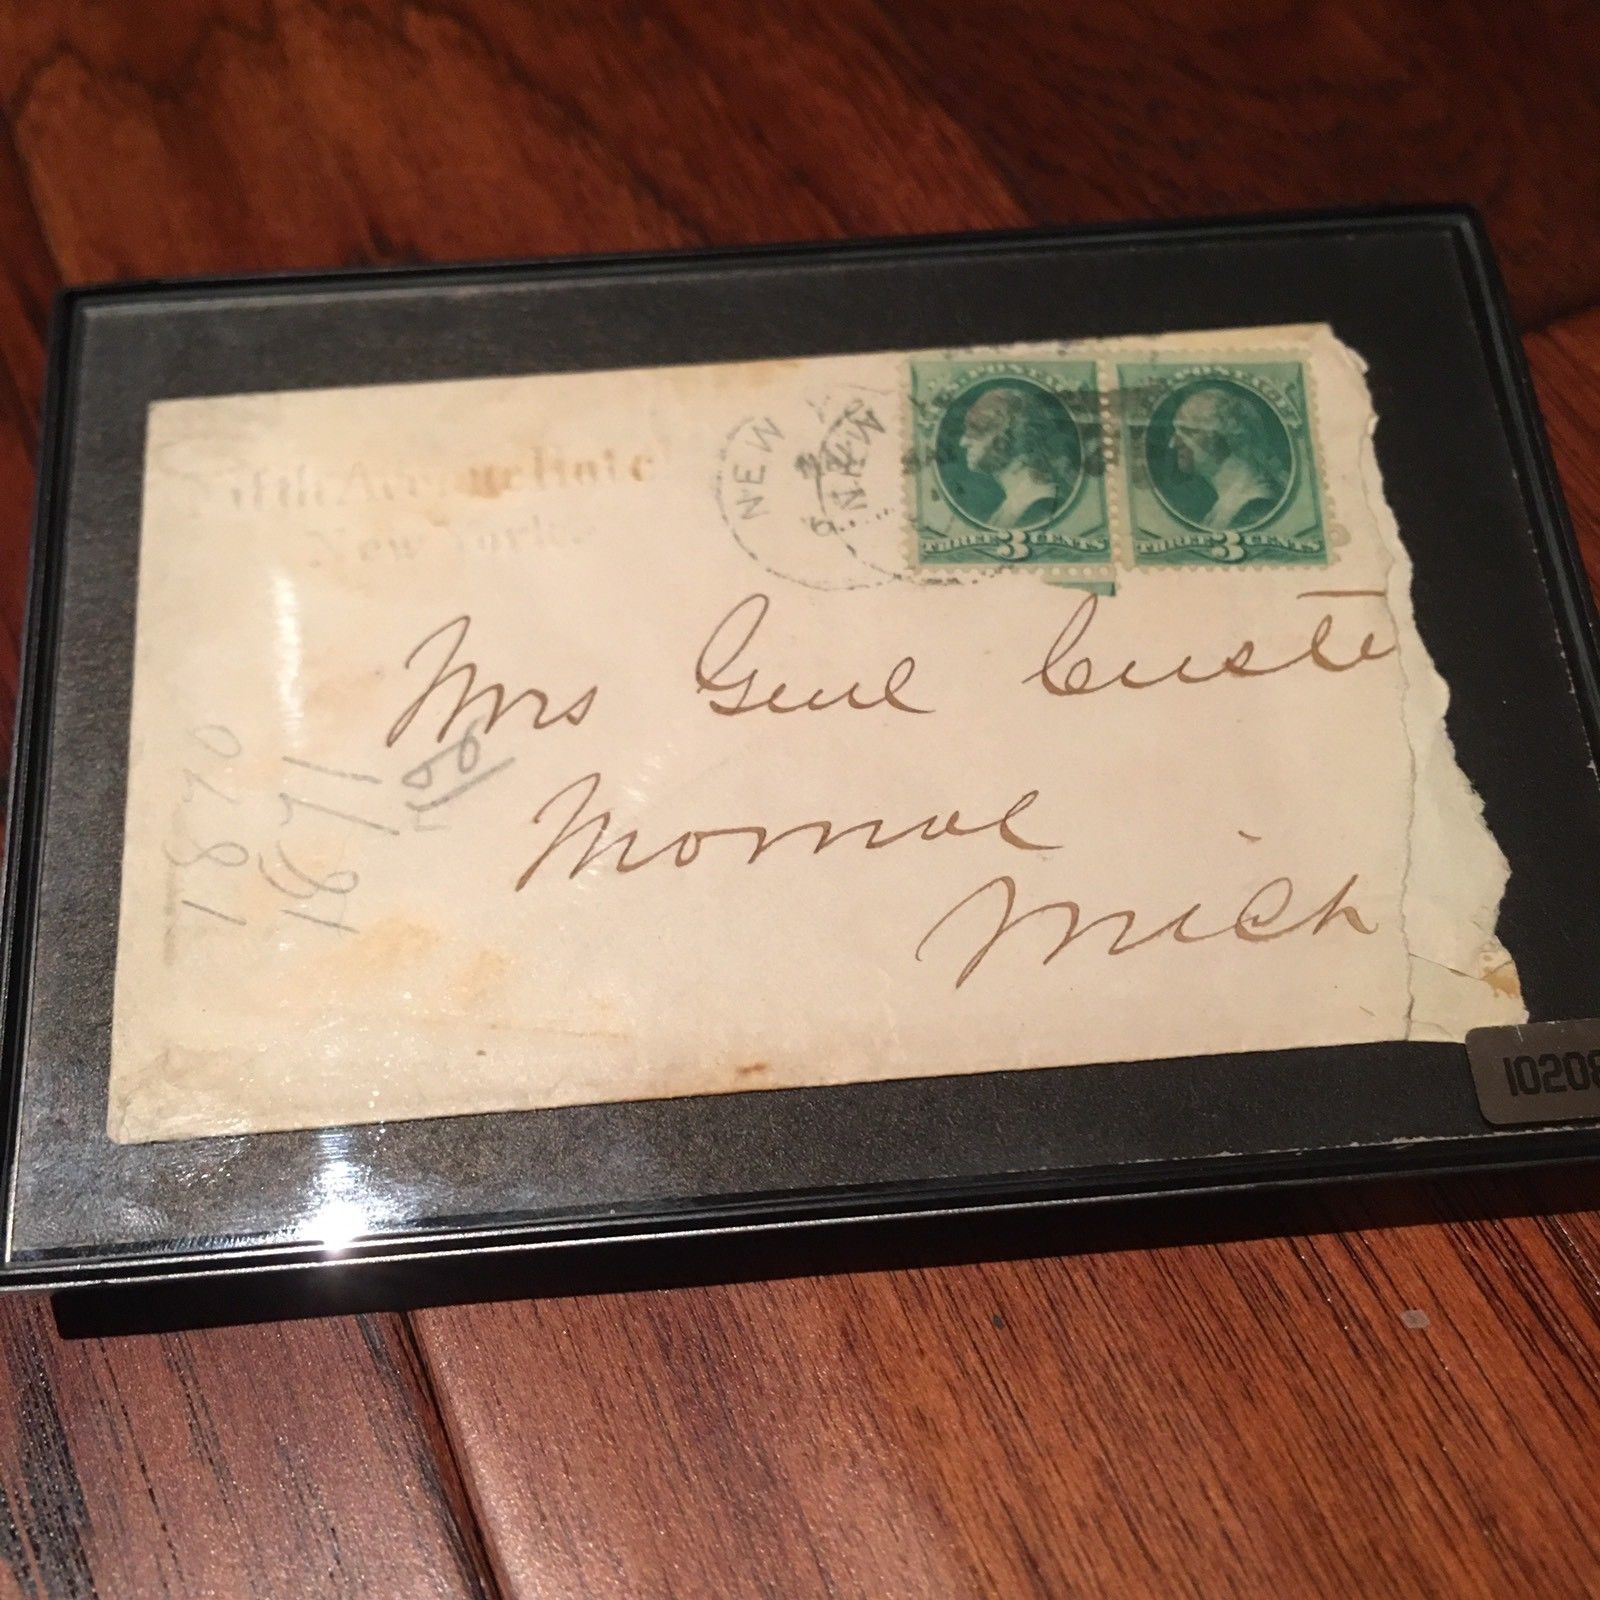 Fifth Avenue Hotel
New York.
NEW
U.S. POSTAGE
THREE 3 CENTS
U.S. POSTAGE
THREE 3 CENTS
Mrs Genl Custe
Monroe
Mich
1870
1871
10208